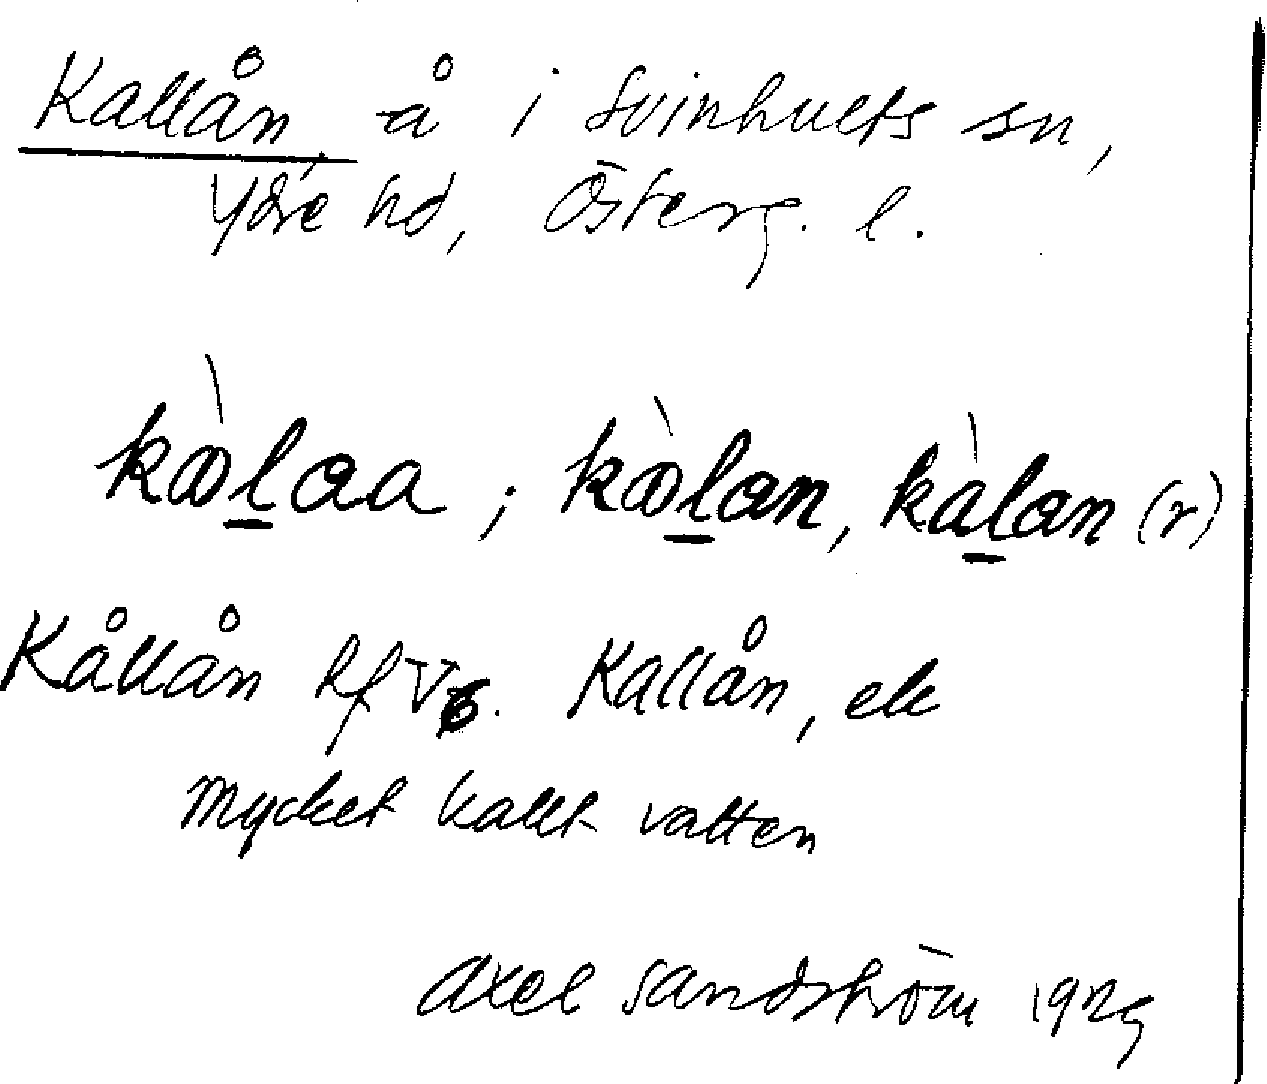 Kallån å i Svinhults sn,
Ydre hd, Österg. l.
kòlaa ; kòlan, kàlan (r)
Kållån Kallån, el
mycket kallt vatten
Axel Sandström 1929